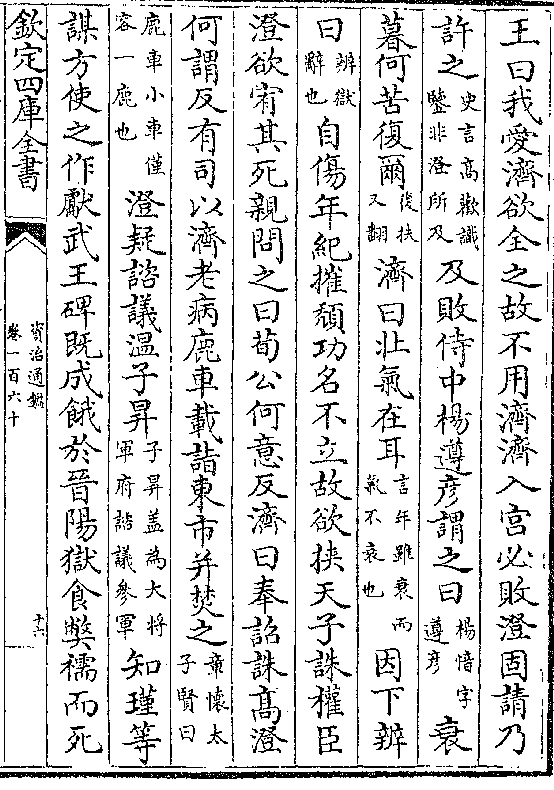 王曰我愛濟欲全之故不用濟濟入宮必敗澄固請乃
許之史言高歡識鑒非澄所及及敗侍中楊遵彦謂之曰楊愔字遵彦衰
暮何苦復爾復扶又翻濟曰壯氣在耳言年雖衰而氣不衰也因下辨
曰辨獄辭也自傷年紀摧頽功名不立故欲挾天子誅權臣
澄欲宥其死親問之曰荀公何意反濟曰奉詔誅髙澄
何謂反有司以濟老病鹿車載詣東市并焚之章懷太子賢曰
鹿車小車僅容一鹿也澄疑諮議溫子昇子昇盖為大將軍府諮議參軍知瑾等
謀方使之作獻武王碑既成餓於晉陽獄食弊襦而死
欽定四庫全書
資治通鑑
卷一百六十
十六